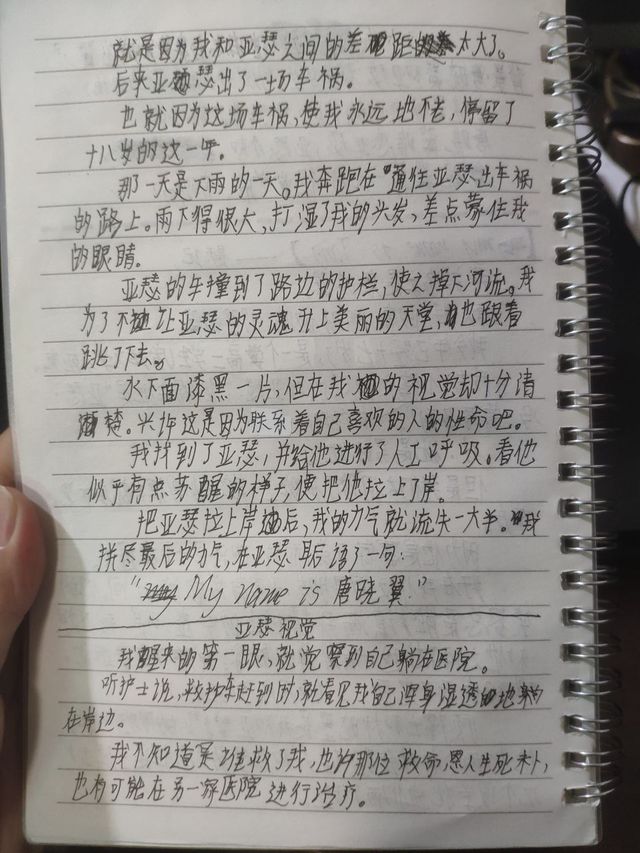 就是因为我和亚瑟之间的差距太大了。
后来亚瑟出了一场车祸。
也就因为这场车祸,使我永远地不老,停留了
十八岁的这一年。
那一天是下雨的一天。我奔跑在通往亚瑟出车祸
的路上。雨下得很大,打湿了我的头发,差点蒙住我
的眼睛。
亚瑟的车撞到了路边的护栏,使之掉下河流。我
为了不让亚瑟的灵魂升上美丽的天堂,也跟着
跳了下去。
水下面漆黑一片,但在我的视觉却十分清
楚。兴许这是因为联系着自己喜欢的人的性命吧。
我找到了亚瑟,并给他进行了人工呼吸。看他
似乎有点苏醒的样子,便把他拉上了岸。
把亚瑟拉上岸后,我的力气就流失一大半。我
拼尽最后的力气,在亚瑟耳后语了一句:
“My name is 唐晓翼.”
亚瑟视觉
我醒来的第一眼,就觉察到自己躺在医院。
听护士说,救护车赶到时,就看见我自己浑身湿透地躺
在岸边。
我不知道是谁救了我,也许那位救命恩人生死未卜,
也有可能在另一家医院进行治疗。